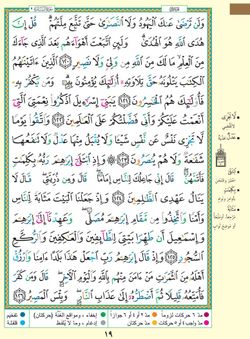 وَلَن تَرْضَىٰ عَنكَ ٱلْيَهُودُ وَلَا ٱلنَّصَـٰرَىٰ حَتَّىٰ تَتَّبِعَ مِلَّتَهُمْ ۗ قُلْ إِنَّ
هُدَى ٱللَّهِ هُوَ ٱلْهُدَىٰ ۗ وَلَئِنِ ٱتَّبَعْتَ أَهْوَآءَهُم بَعْدَ ٱلَّذِى جَآءَكَ
مِنَ ٱلْعِلْمِ ۙ مَا لَكَ مِنَ ٱللَّهِ مِن وَلِىٍّ وَلَا نَصِيرٍ ١٢٠ ٱلَّذِينَ ءَاتَيْنَـٰهُمُ
ٱلْكِتَـٰبَ يَتْلُونَهُۥ حَقَّ تِلَاوَتِهِۦٓ أُو۟لَـٰٓئِكَ يُؤْمِنُونَ بِهِۦ ۗ وَمَن يَكْفُرْ بِهِۦ
فَأُو۟لَـٰٓئِكَ هُمُ ٱلْخَـٰسِرُونَ ١٢١ يَـٰبَنِىٓ إِسْرَٰٓءِيلَ ٱذْكُرُوا۟ نِعْمَتِىَ ٱلَّتِىٓ
أَنْعَمْتُ عَلَيْكُمْ وَأَنِّى فَضَّلْتُكُمْ عَلَى ٱلْعَـٰلَمِينَ ١٢٢ وَٱتَّقُوا۟ يَوْمًا
لَّا تَجْزِى نَفْسٌ عَن نَّفْسٍ شَيْـًٔا وَلَا يُقْبَلُ مِنْهَا عَدْلٌ وَلَا تَنفَعُهَا
شَفَـٰعَةٌ وَلَا هُمْ يُنصَرُونَ ١٢٣ ۞ وَإِذِ ٱبْتَلَىٰٓ إِبْرَٰهِـۧمَ رَبُّهُۥ بِكَلِمَـٰتٍ
فَأَتَمَّهُنَّ ۖ قَالَ إِنِّى جَاعِلُكَ لِلنَّاسِ إِمَامًا ۖ قَالَ وَمِن ذُرِّيَّتِى ۖ قَالَ لَا
يَنَالُ عَهْدِى ٱلظَّـٰلِمِينَ ١٢٤ وَإِذْ جَعَلْنَا ٱلْبَيْتَ مَثَابَةً لِّلنَّاسِ
وَأَمْنًا وَٱتَّخِذُوا۟ مِن مَّقَامِ إِبْرَٰهِـۧمَ مُصَلًّى ۖ وَعَهِدْنَآ إِلَىٰٓ إِبْرَٰهِـۧمَ
وَإِسْمَـٰعِيلَ أَن طَهِّرَا بَيْتِىَ لِلطَّآئِفِينَ وَٱلْعَـٰكِفِينَ وَٱلرُّكَّعِ
ٱلسُّجُودِ ١٢٥ وَإِذْ قَالَ إِبْرَٰهِـۧمُ رَبِّ ٱجْعَلْ هَـٰذَا بَلَدًا ءَامِنًا وَٱرْزُقْ
أَهْلَهُۥ مِنَ ٱلثَّمَرَٰتِ مَنْ ءَامَنَ مِنْهُم بِٱللَّهِ وَٱلْيَوْمِ ٱلْـَٔاخِرِ ۖ قَالَ وَمَن كَفَرَ
فَأُمَتِّعُهُۥ قَلِيلًا ثُمَّ أَضْطَرُّهُۥٓ إِلَىٰ عَذَابِ ٱلنَّارِ ۖ وَبِئْسَ ٱلْمَصِيرُ ١٢٦
١٩